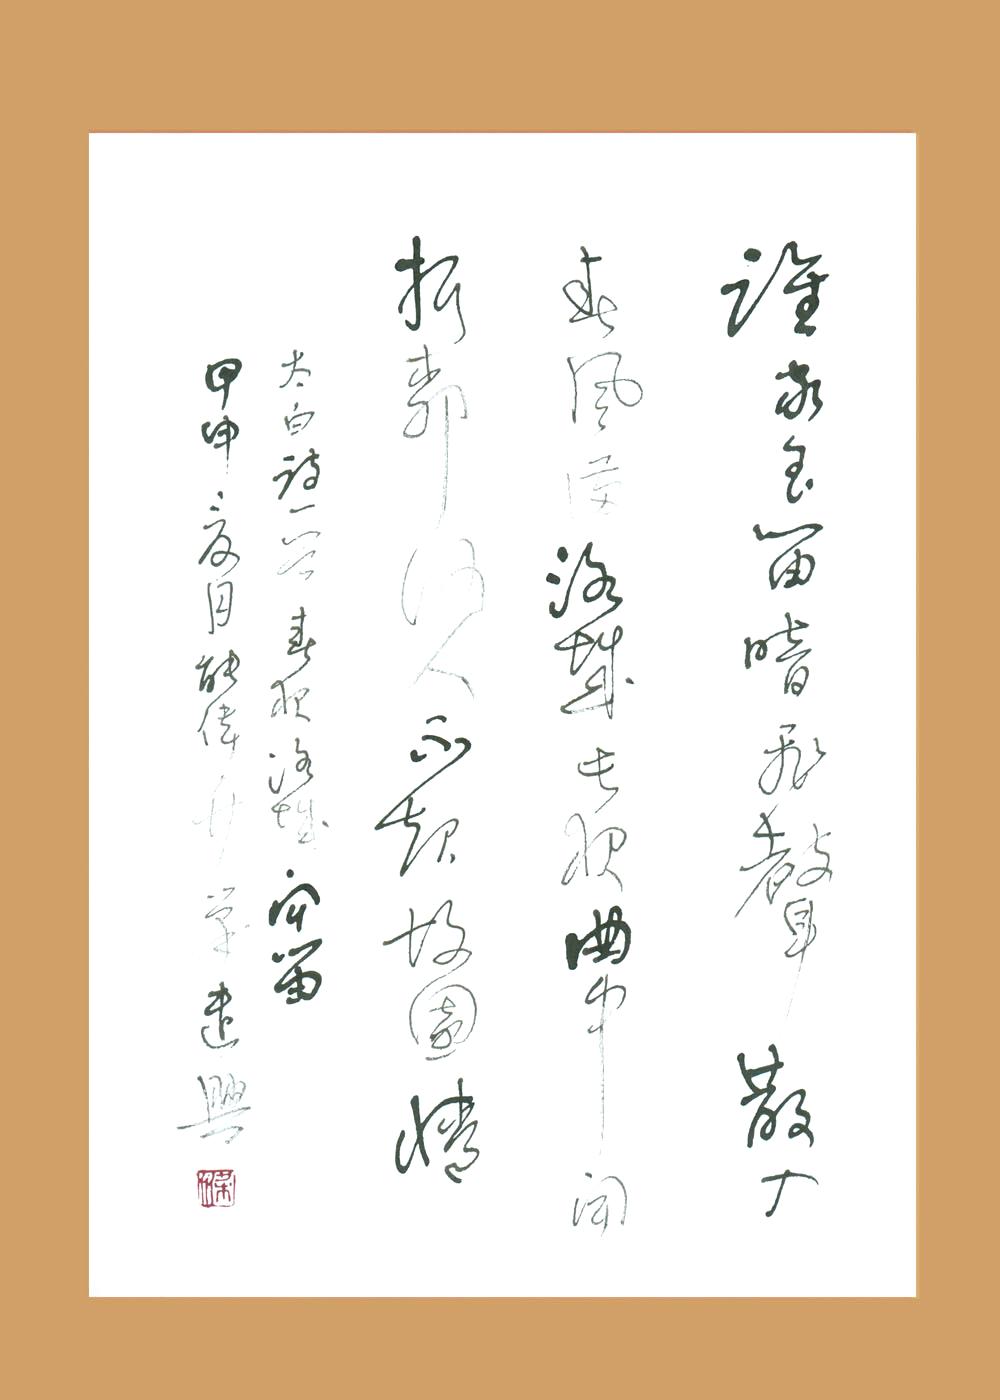 誰家玉笛暗飛聲散入
春風滿洛城此夜曲中聞
折柳何人不起故園情
太白詩一首春夜洛城聞笛
甲申夏月 遣興